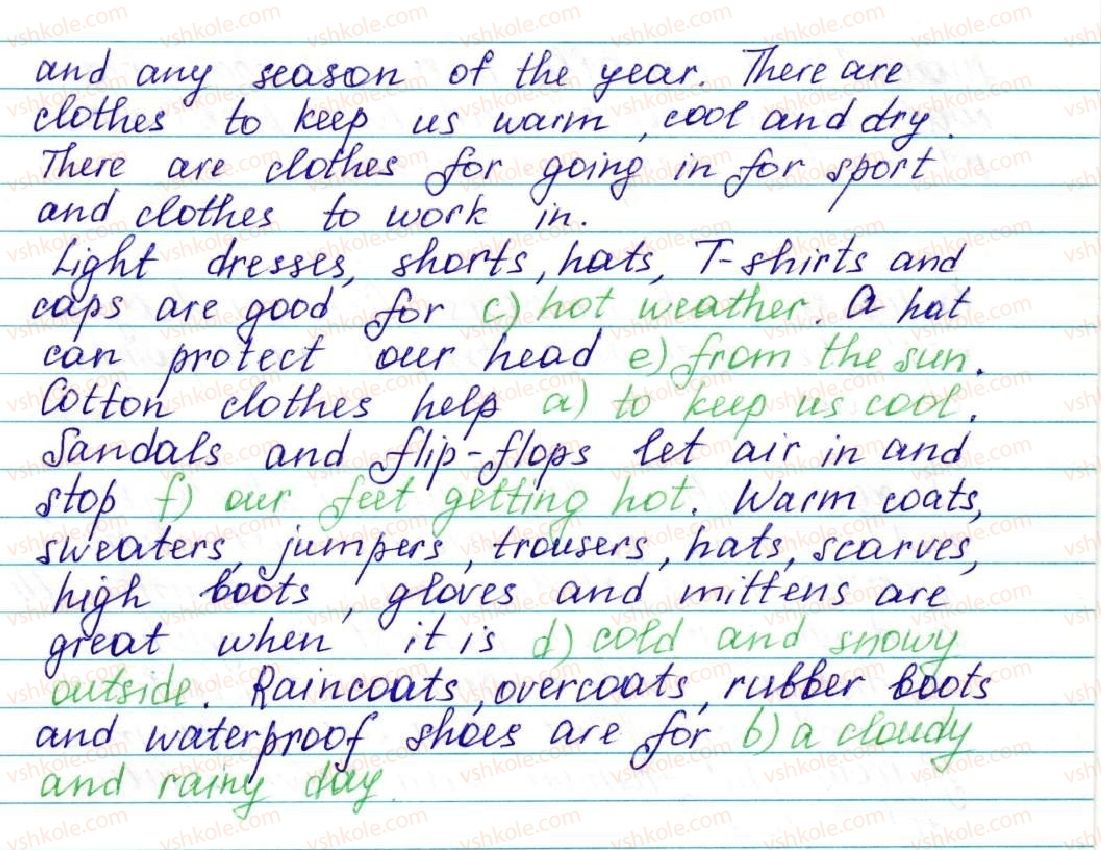 and any season of the year. There are
clothes to keep us warm, cool and dry.
There are clothes for going in for sport
and clothes to work in.
Light dresses, shorts, hats, T-shirts and
caps are good for c) hot weather. A hat
can protect our head e) from the sun.
Cotton clothes help a) to keep us cool.
Sandals and flip-flops let air in and
stop f) our feet getting hot. Warm coats,
sweaters, jumpers, trousers, hats, scarves,
high boots, gloves and mittens are
great when it is d) cold and snowy
outside. Raincoats, overcoats, rubber boots
and waterproof shoes are for b) a cloudy
and rainy day.
vshkole.com